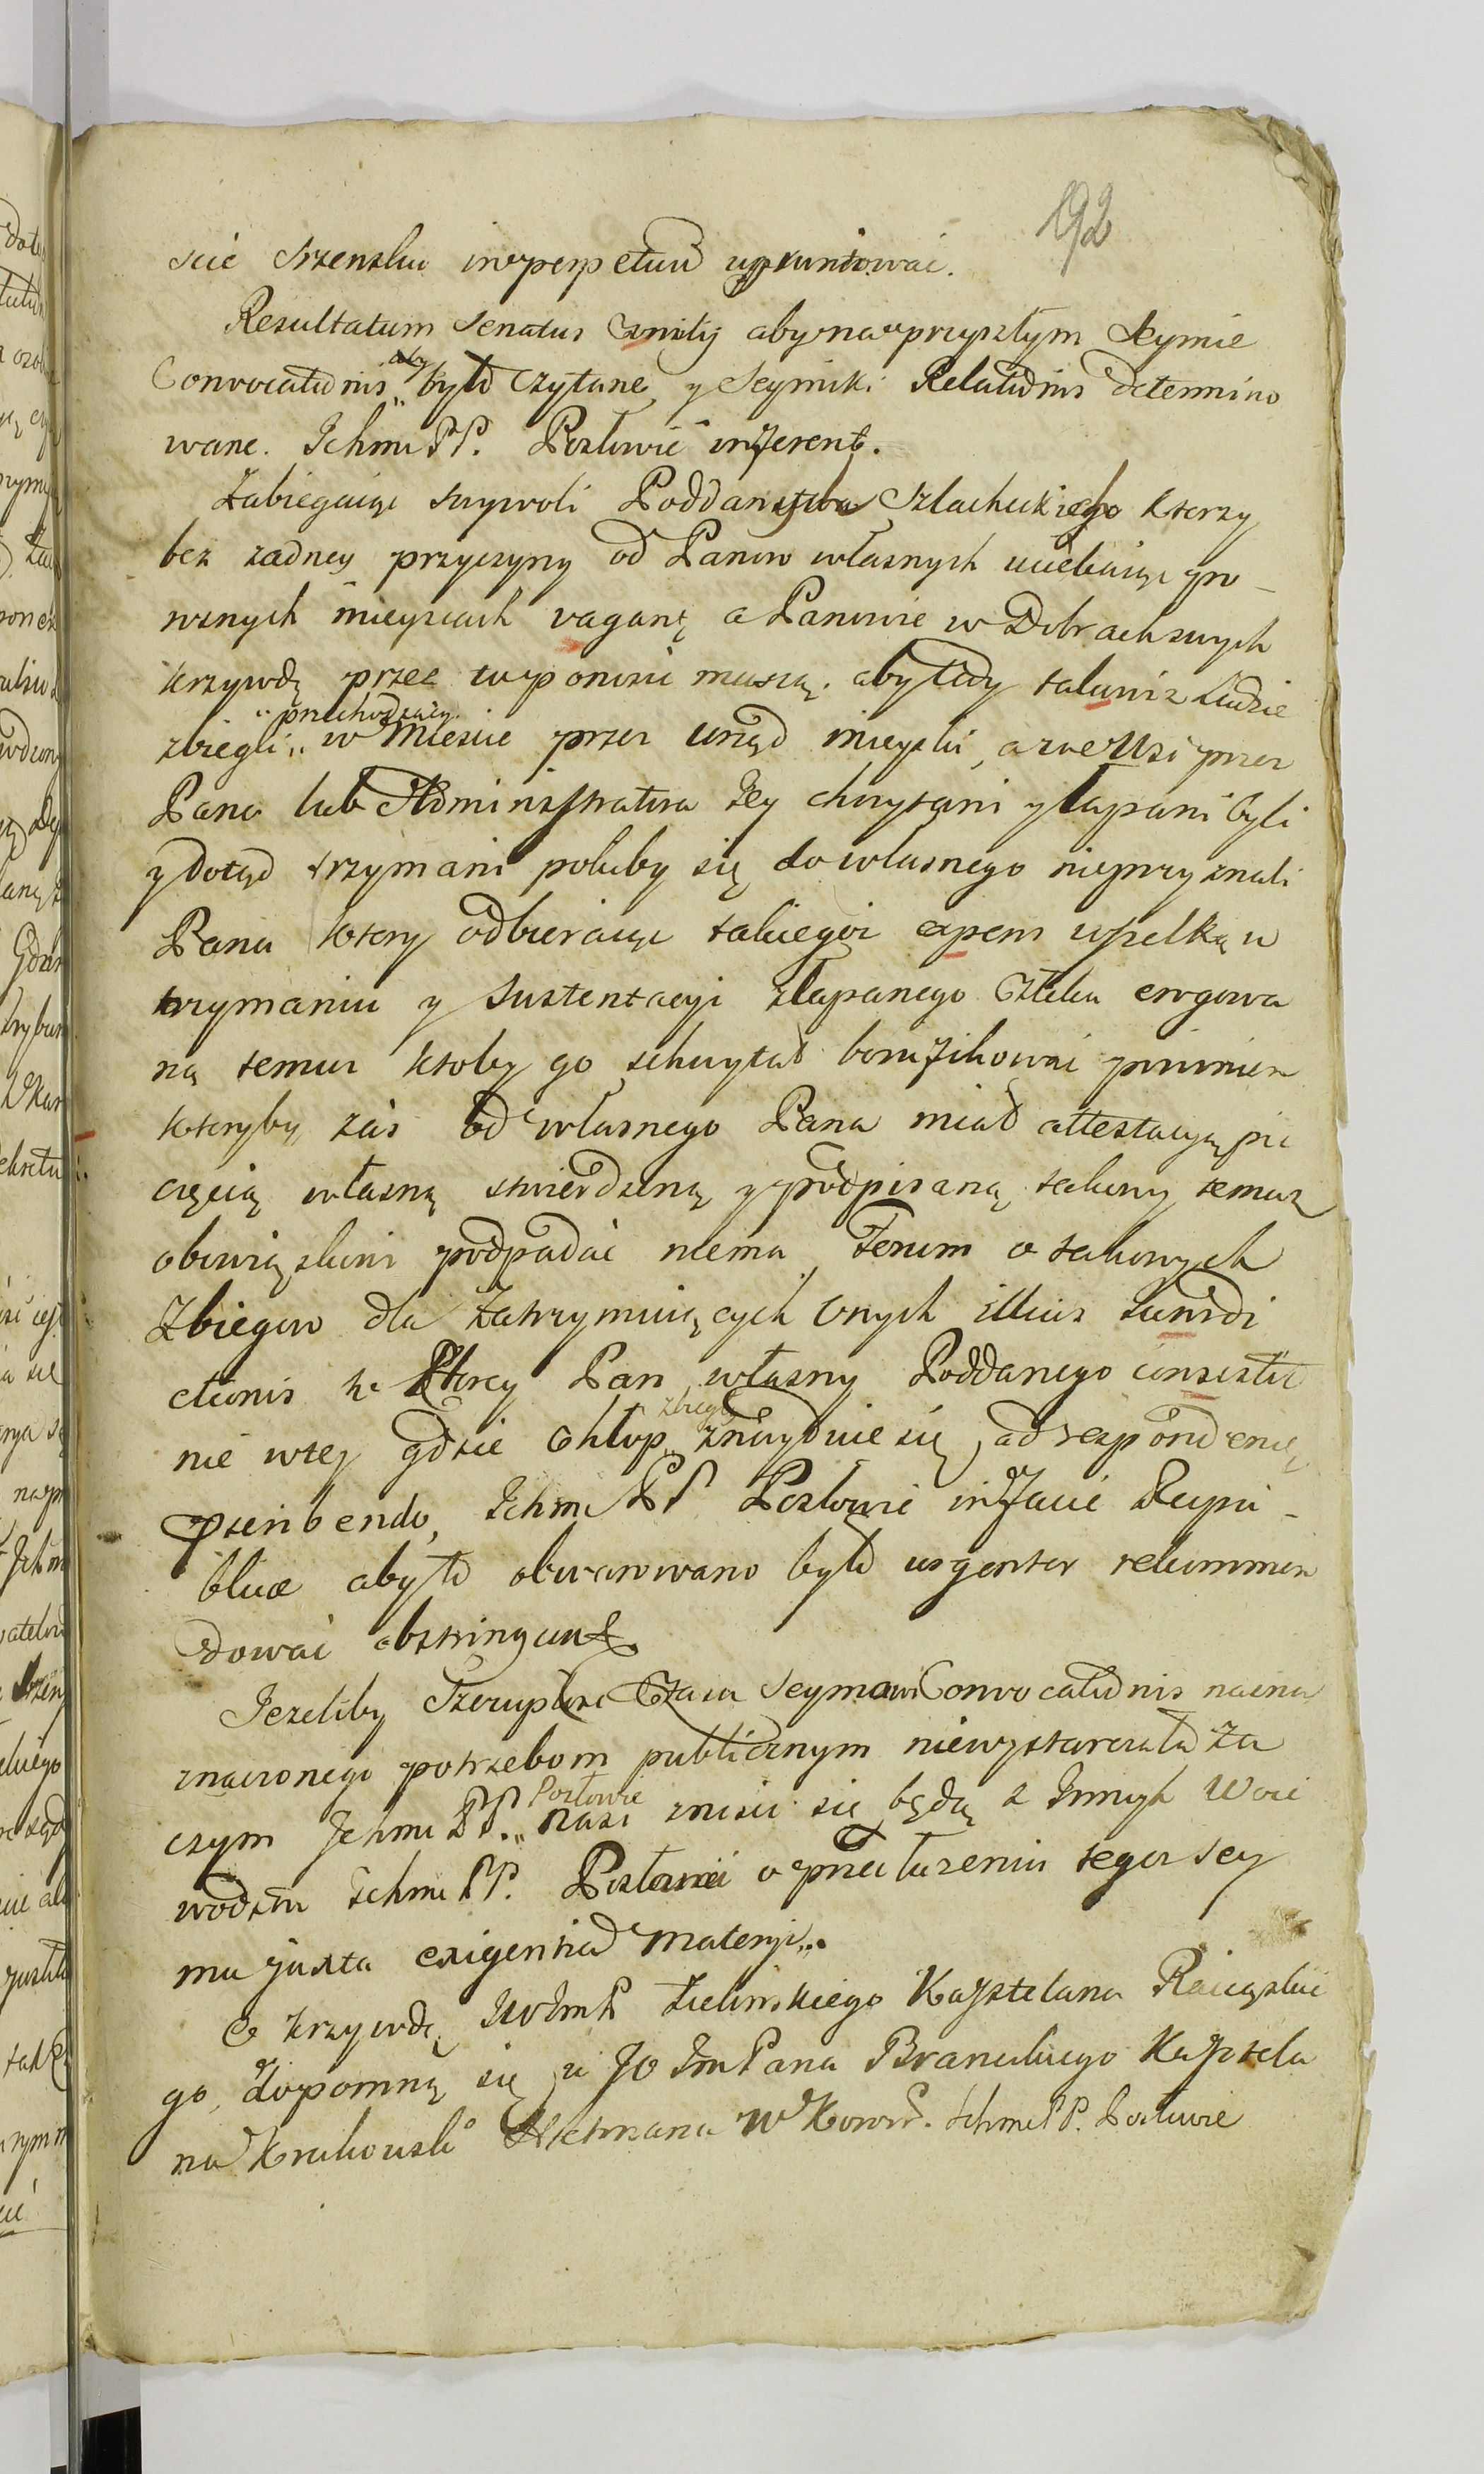 192
scie Srzensku in perpetuu ugruntować.
Resultatum Senatus Consily aby na przyszłym Seymie
Convocationis aby było czytane, y Seymiki Relationis determino
wane. Ichmc PP. Posłowie inferent.
Zabiegaiąc swywoli Poddanstwa Szlacheckiego ktorzy
bez zadney przyczyny od Panow własnych uciekaiąc po
roznych mieyscach vagant, a Panowie w Dobrach swych
krzywdę przez to ponosić muszą. aby tedy takowi Ludzie
zbiegli przechodzący w Miescie przez Urząd mieyski, a we Wsi przez
Pana lub Administratora Jey chwytani y łapani byli
y dotąd trzymani pokuby się do własnego nieprzyznali
Pana ktory odbieraiąc takiegoż expens wszelką w
trzymaniu y sustentacyi złapanego Człeka erogowa
ną temuż ktoby go schwytał bonifikować powinien
ktoryby zas od własnego Pana miał attestacyą pie
częcią własną stwierdzoną y podpisaną, takowy temuż
obowiązkowi podpadać niema. Forum o takowych
Zbiegow dla Zatrzymuiących onych illius Jurisdi
ctionis w ktorey Pan własny Poddanego consistit
nie w tey gdzie Chłop zbiegły znayduie się, ad respondendu
prescribendo, Ichmc PP Posłowie in facie Reipu
blicæ aby to obwarowano było urgenter rekommen
dować obstringunt.
Jezeliby Szczupłosc Czasu Seymowi Convocationis nazna
znaczonego potrzebom publicznym niewystarczała za
czym Ichmc PP. Posłowie nasi zniesc się będą z Innych Woie
wodztw Ichmc PP. Posłami o przedłuzeniu tegoz Sey
mu juxta exigentia materyi.
O krzywdę JW ImP Zielinskiego Kasztelana Raciąskie
go, dopomną się u JO ImPana Branickiego Kasztela
na Krakowsko Hetmana W Koron. Ichmc PP. Posłowie